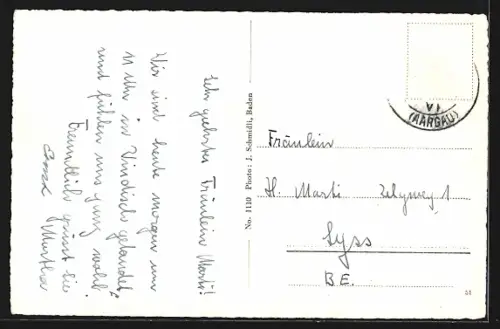 Sehr geehrtes Fräulein Marti!
Wir sind heute morgen um
11 Uhr in Windisch gelandet,
und fühlen uns ganz wohl.
Freundlich grüsst Sie
Martha
No. 1110 Photo: J. Schmidli, Baden
VI
(AARGAU)
Fräulein
H. Marti
Lyss
B.E.